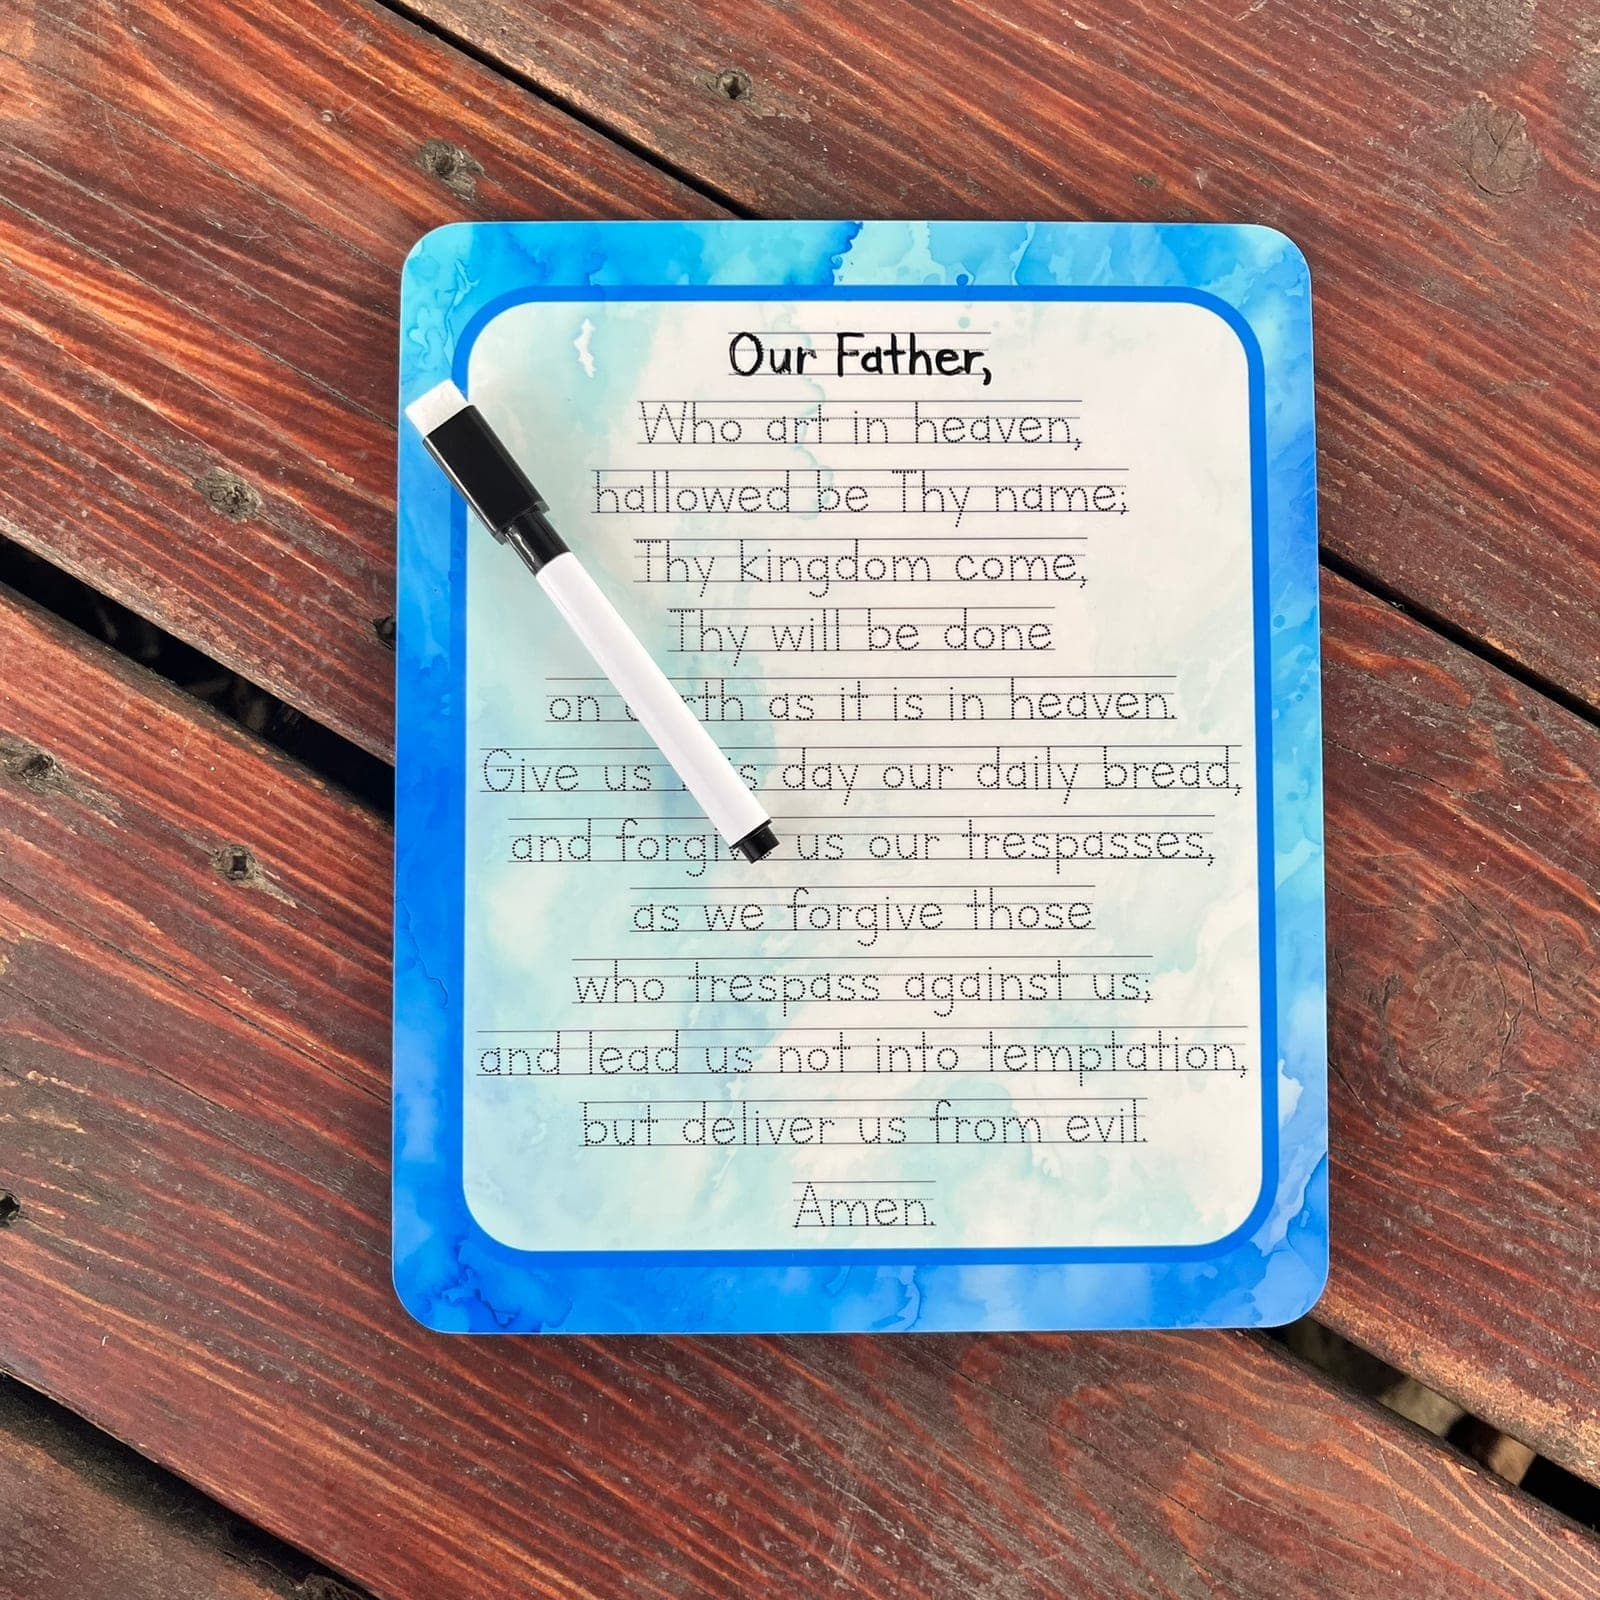 Our Father,
Who art in heaven,
hallowed be Thy name;
Thy kingdom come,
Thy will be done
on as it is in heaven.
Give us day our daily bread,
and us our trespasses,
as we forgive those
who trespass against us;
and lead us not into temptation,
but deliver us from evil.
Amen.